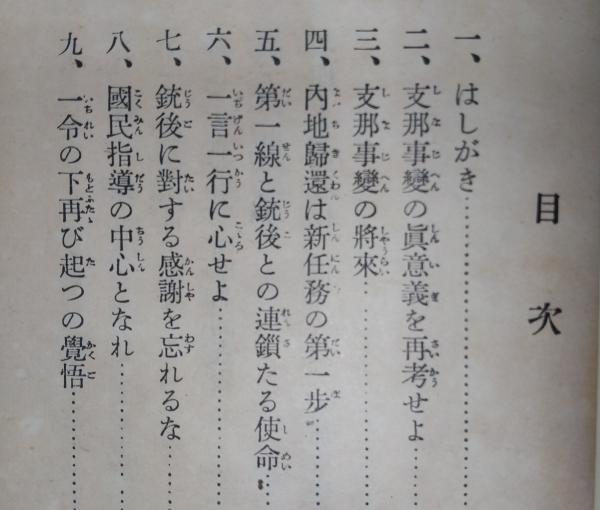 目次
一、はしがき
二、支那事變の眞意義を再考せよ
三、支那事變の將來
四、內地歸還は新任務の第一步
五、第一線と銃後との連鎖たる使命
六、一言一行に心せよ
七、銃後に對する感謝を忘れるな
八、國民指導の中心となれ
九、一令の下再び起つの覺悟